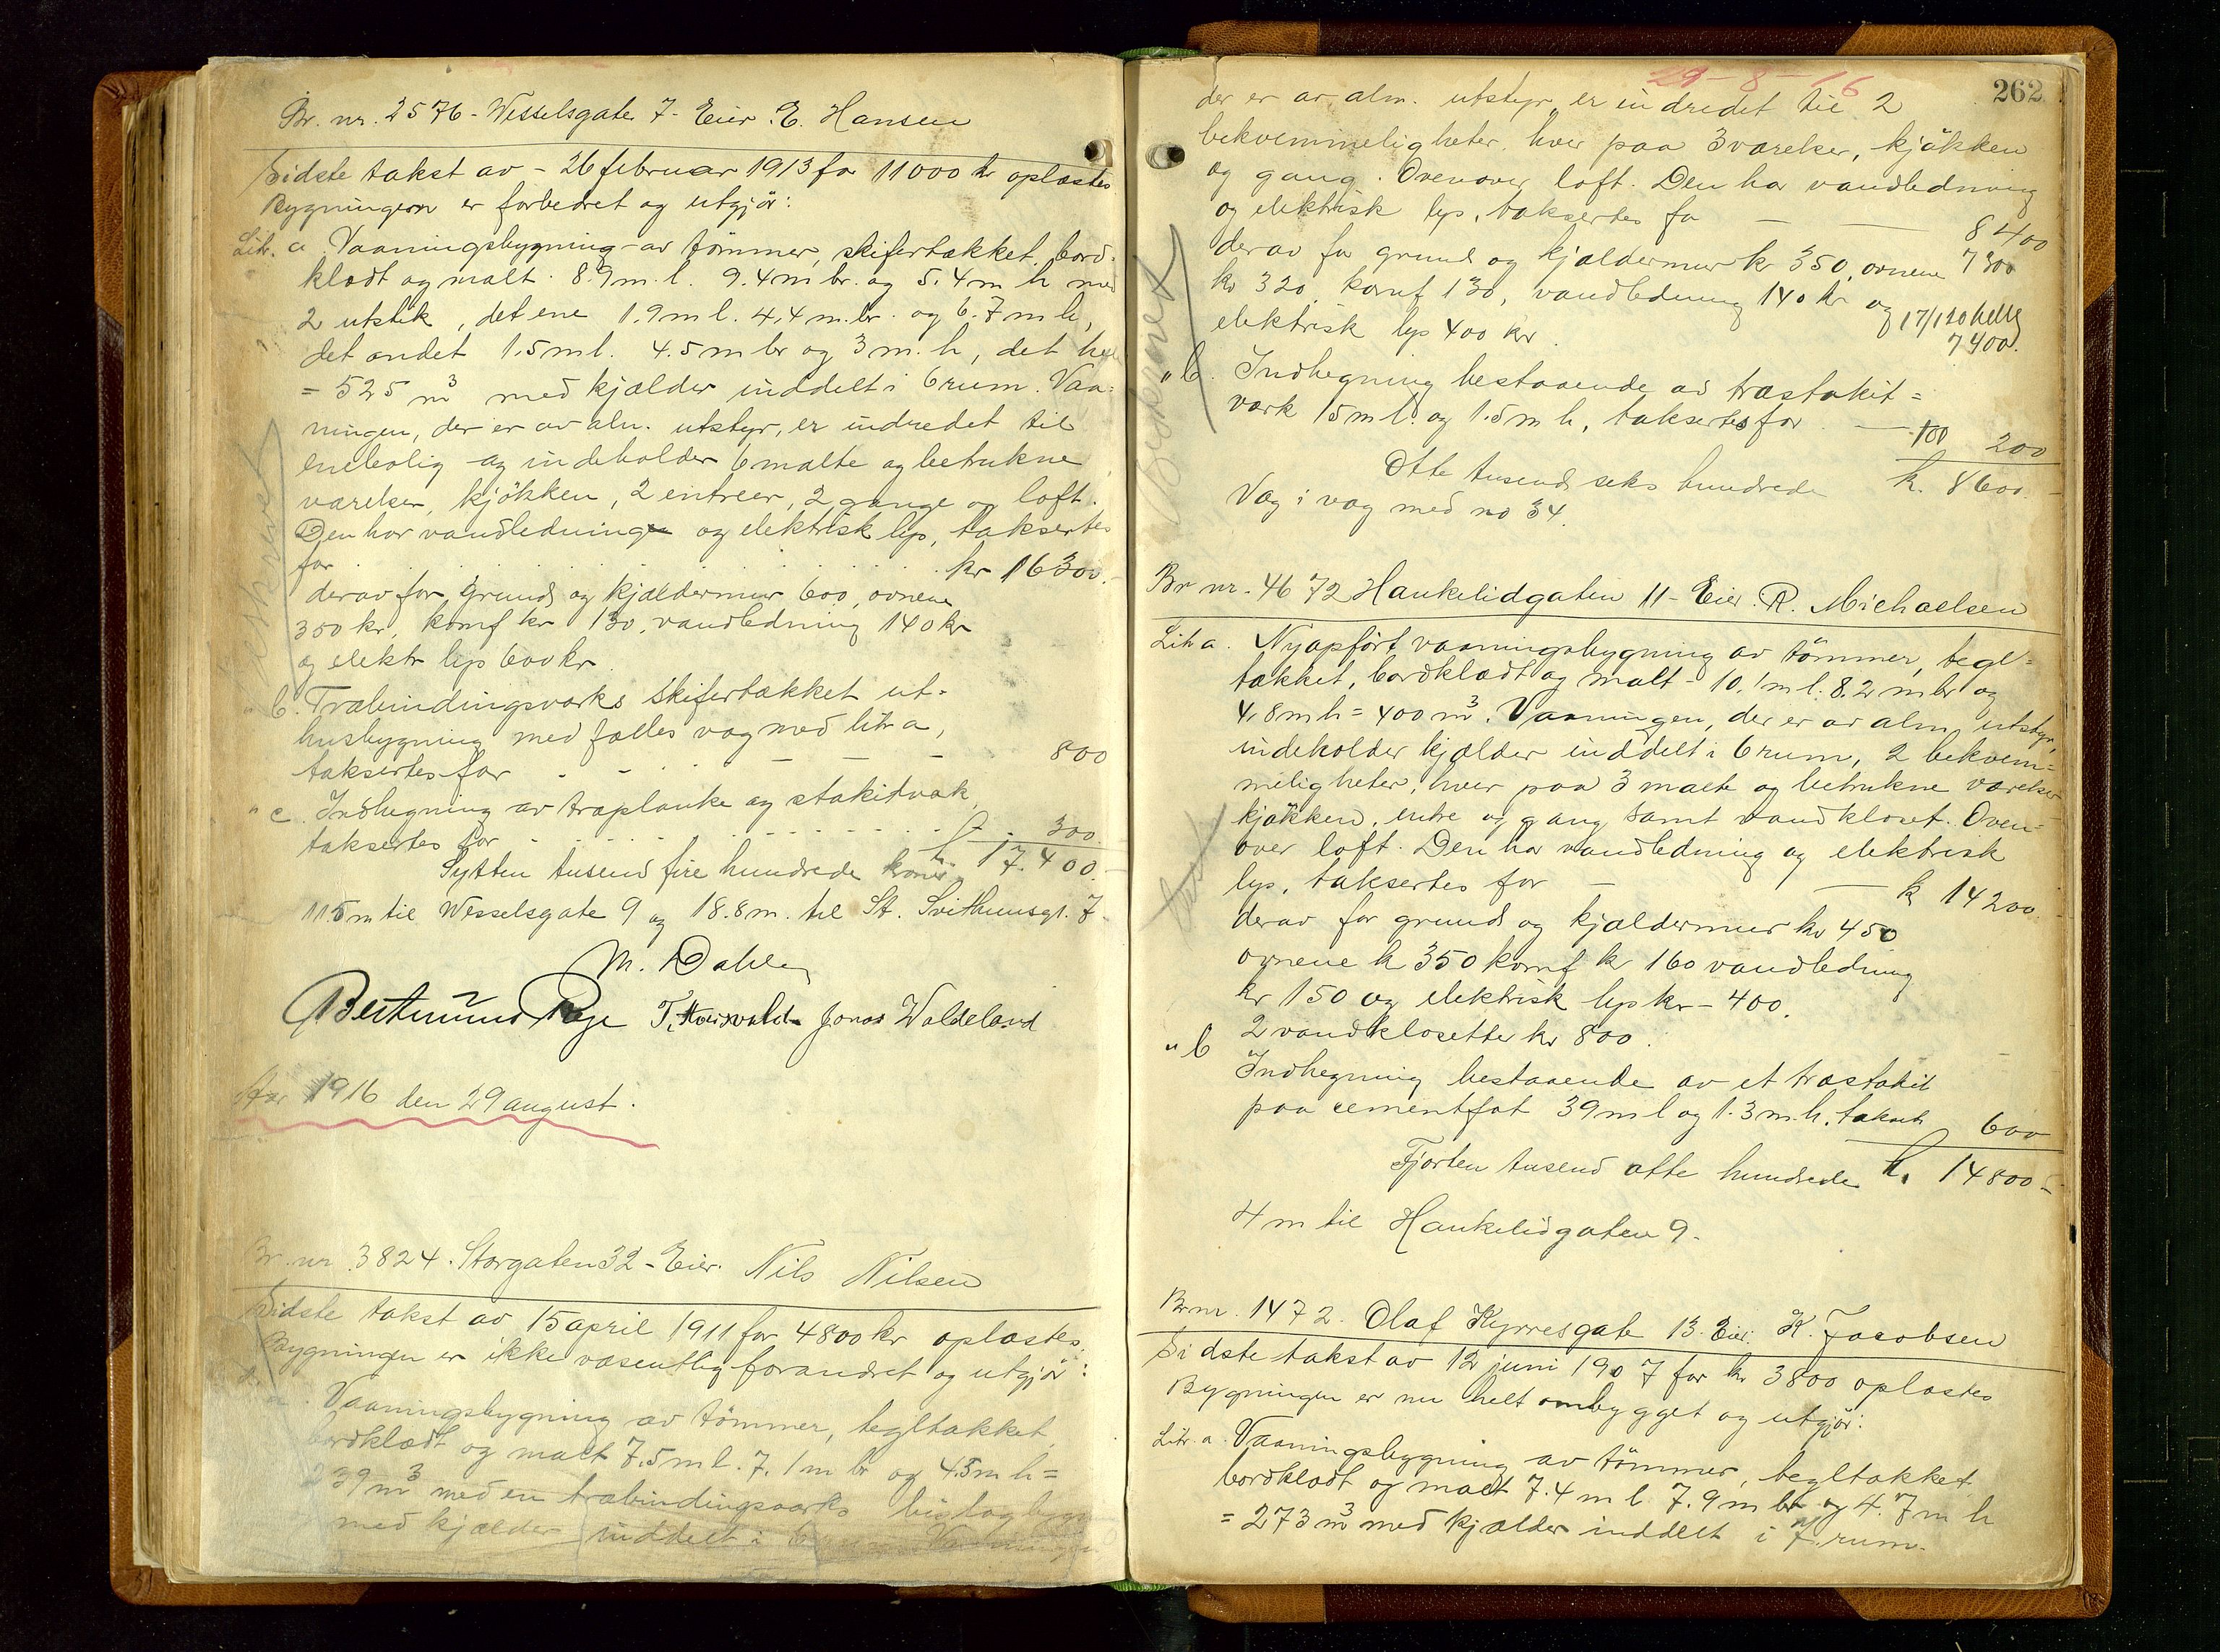 Br. nr. 2576 - Wesselsgate 7 - Eier E. Hansen
Sidste takst av - 26 februar 1913 for 11000 kr oplæstes
Bygningern er forbedret og utgjör:
Litr. a. Vaaningsbygning av tömmer, skifertækket, bord-
klædt og malt. 8.9 m. l. 9.4 m br. og 5.4 m h med
2 utstik, det ene 1.9 m l. 4.4 m. br. og 6.7 m h,
det andet 1.5 m l. 4.5 m br og 3 m. h, det hele
= 525 m³ med kjælder inddelt i 6 rum. Vaa-
ningen, der er av alm. utstyr, er indredet til
enebolig og indeholder 6 malte og betrukne
værelser, kjökken, 2 entreer, 2 gange og loft.
Den har vandledning og elektrisk lys, taksertes
for . . . . . . . kr 16300.-
derav for grund og kjældermur 600, ovnene
350 kr, komf kr 130, vandledning 140 kr
og elektr lys 600 kr.
" b. Træbindingsværks skifertækket ut-
husbygning med fælles væg med litr a,
taksertes for - - - - 800
" c. Indhegning av træplanke og stakitværk,
taksertes for . . . . . . 300.
Sytten tusend fire hundrede kroner kr. 17.400.-
11.5 m til Wesselsgate 9 og 18.8 m. til St. Svithunsgt. 7
M. Dahle
T. Hoisvald Jonas Waldeland
Aar 1916 den 29 august.
Br. nr. 3824. Storgaten 32 - Eier. Nils Nilsen
Sidste takst av 15 april 1911 for 4800 kr oplæstes.
Bygningen er ikke væsentlig forandret og utgjör:
a. Vaaningsbygning av tömmer, tegltækket,
bordklædt og malt 7.5 m l. 7.1 m br og 4.5 m h =
239 m³ med en træbindingsværks bislagbygn
med kjælder inddelt i 6 rum. Vaaningen
29-8-16
262
der er av alm. utstyr er indredet til 2
bekvemmeligheter, hver paa 3 værelser, kjökken
og gang. Ovenover loft. Den har vandledning
og elektrisk lys, taksertes for - - 8400
derav for grund og kjældermur kr 350, ovnene 7300
kr 320, komf 130, vandledning 140 kr og
elektrisk lys 400 kr. 7400.
" b. Indhegning bestaaende av træstakit=
værk 15 m l. og 1.5 m h, taksertes for - 100 200
Otte tusend seks hundrede k. 8600.-
Væg i væg med no 34.
Beskrevet
Br nr. 4672 Haukelidgaten 11 - Eier. R. Michaelsen
Litr a. Nyopfört vaaningsbygning av tömmer, tegl=
tækket, bordklædt og malt - 10.1 m l. 8.2 m br og
4,8 m h = 400 m³. Vaaningen, der er av alm. utstyr,
indeholder kjælder inddelt i 6 rum, 2 bekvem=
meligheter, hver paa 3 malte og betrukne værelser
kjökken, entre og gang samt vandkloset. Oven=
over loft. Den har vandledning og elektrisk
lys, taksertes for - - k 14200.
derav for grund og kjældermur kr 450
ovnene k 350 komf k 160 vandledning
kr 150 og elektrisk lys kr - 400.
2 vandklosetter kr 800.
" b Indhegning bestaaende av et træstakit
paa cementfot 39 m l og 1.3 m. h. takset 600
Fjorten tusend otte hundrede k. 14800-
4 m til Haukelidgaten 9.
Br nr. 1472. Olaf Kyrresgate 13. Eier: K. Jacobsen
Sidste takst av 12 juni 1907 for kr. 3800 oplæstes
Bygningen er nu helt ombygget og utgjör:
Litr. a. Vaaningsbygning av tömmer, tegltækket,
bordklædt og malt 7.4 m l 7.9 m br og 4.7 m h
= 273 m³ med kjælder inddelt i 7 rum.